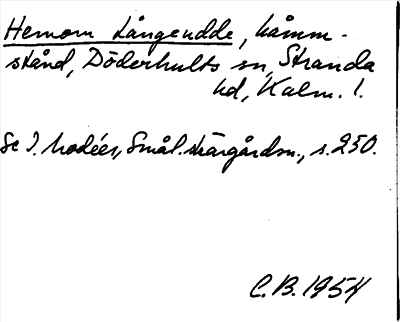 Hemom Långeudde, håmm-
stånd, Döderhults sn, Stranda
hd, Kalm. l.
Se I. Modéer, Smål. skärgårdsn., s. 250.
C.B. 1954